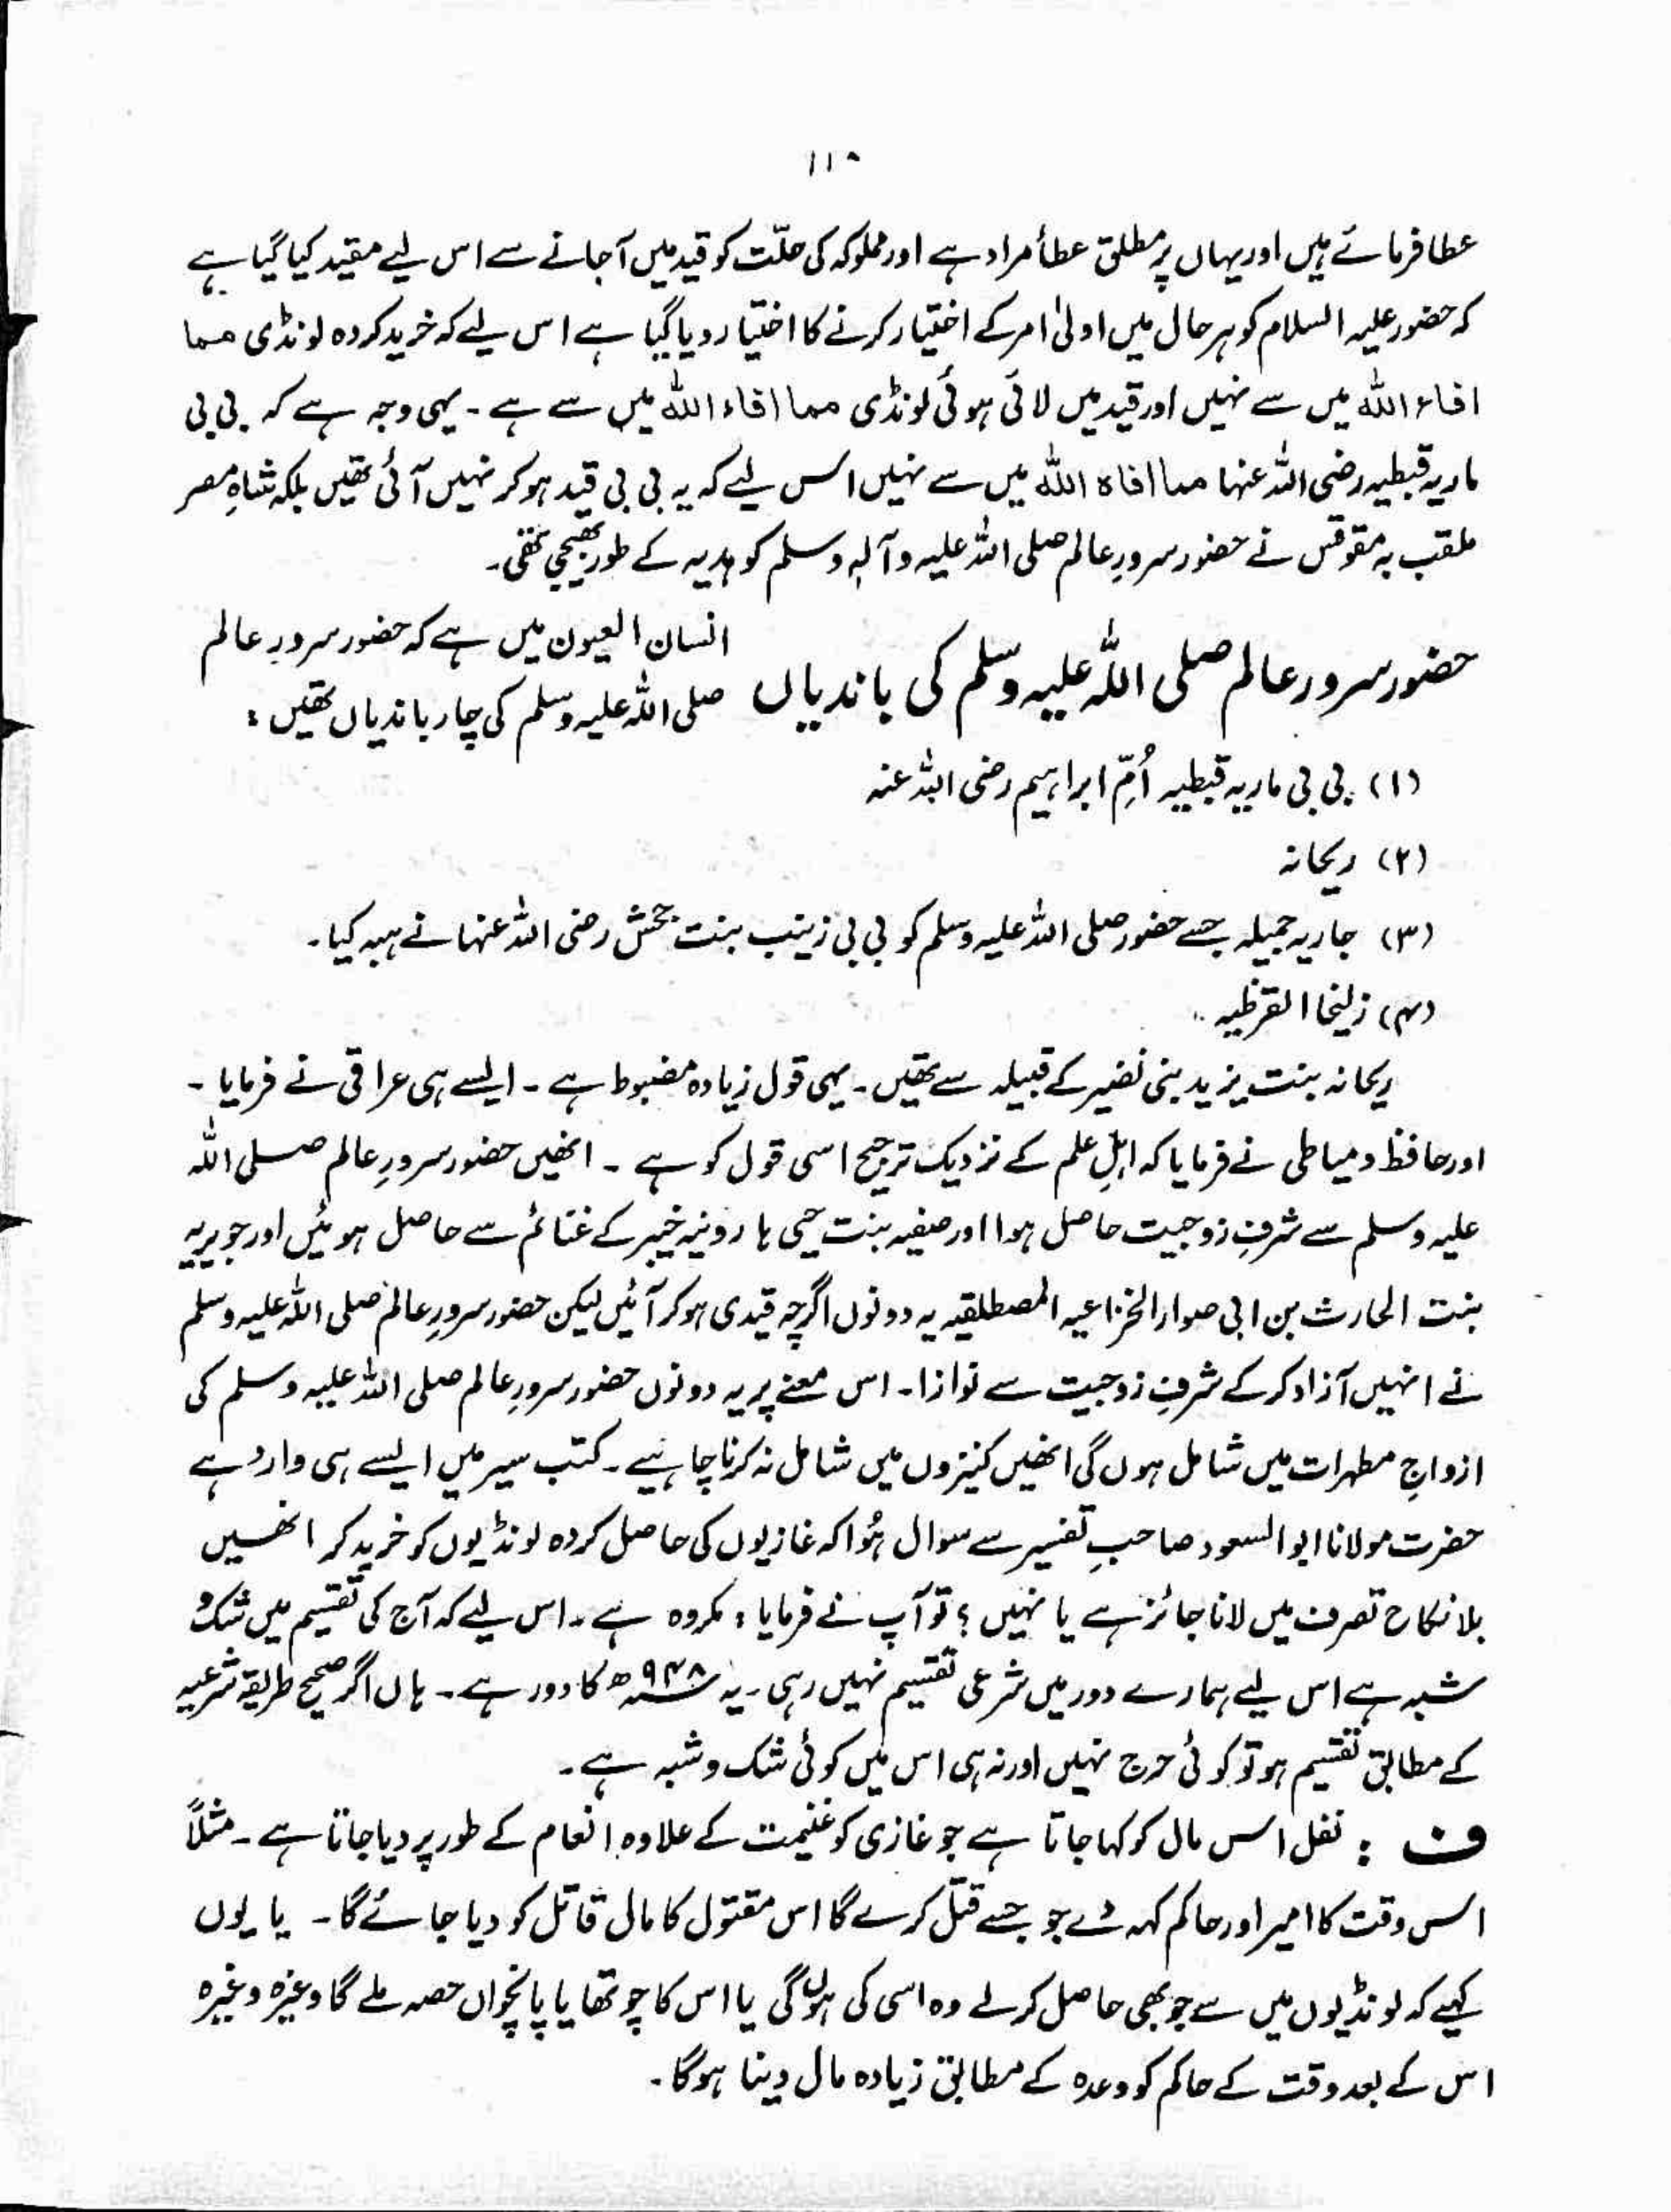 ۱۱۸
عطا فرمائے ہیں اور یہاں پر مطلق عطأ مراد ہے اور مملوکہ کی حلّت کو قید میں آجانے سے اس لیے مقید کیا گیا ہے
کہ حضور علیہ السلام کو ہر حال میں اولیٰ امر کے اختیار کرنے کا اختیار دیا گیا ہے اس لیے کہ خرید کردہ لونڈی مما
افاء اللہ میں سے نہیں اور قید میں لائی ہوئی لونڈی مما افاء اللہ میں سے ہے ۔ یہی وجہ ہے کہ بی بی
ماریہ قبطیہ رضی اللہ عنہا مما افاہ اللہ میں سے نہیں اس لیے کہ یہ بی بی قید ہو کر نہیں آئی تھیں بلکہ شاہِ مصر
ملقب بہ مقوقس نے حضور سرورِ عالم صلی اللہ علیہ وآلہٖ وسلم کو ہدیہ کے طور بھیجی تھی ۔
حضور سرور عالم صلی اللہ علیہ وسلم کی باندیاں
انسان العیون میں ہے کہ حضور سرورِ عالم
صلی اللہ علیہ وسلم کی چار باندیاں تھیں :
(۱) بی بی ماریہ قبطیہ اُمِّ ابراہیم رضی اللہ عنہ
(۲) ریحانہ
(۳) جاریہ جمیلہ جسے حضور صلی اللہ علیہ وسلم کو بی بی زینب بنت جحش رضی اللہ عنہا نے ہبہ کیا ۔
(۴) زلیخا القرظیہ
ریحانہ بنت یزید بنی نضیر کے قبیلہ سے تھیں ۔ یہی قول زیادہ مضبوط ہے ۔ ایسے ہی عراقی نے فرمایا ۔
اور حافظ دمیاطی نے فرمایا کہ اہلِ علم کے نزدیک ترجیح اسی قول کو ہے ۔ انھیں حضور سرورِ عالم صلی اللہ
علیہ وسلم سے شرفِ زوجیت حاصل ہوا اور صفیہ بنت حیی ہارونیہ خیبر کے غنائم سے حاصل ہوئیں اور جویریہ
بنت الحارث بن ابی صوار الخزاعیہ المصطلقیہ یہ دونوں اگرچہ قیدی ہو کر آئیں لیکن حضور سرورِ عالم صلی اللہ علیہ وسلم
نے انہیں آزاد کر کے شرفِ زوجیت سے نوازا ۔ اس معنے پر یہ دونوں حضور سرورِ عالم صلی اللہ علیہ وسلم کی
ازواجِ مطہرات میں شامل ہوں گی انھیں کنیزوں میں شامل نہ کرنا چاہیے ۔ کتب سیر میں ایسے ہی وارد ہے
حضرت مولانا ابوالسعود صاحبِ تفسیر سے سوال ہُوا کہ غازیوں کی حاصل کردہ لونڈیوں کو خرید کر انھیں
بلا نکاح تصرف میں لانا جائز ہے یا نہیں ؟ تو آپ نے فرمایا : مکروہ ہے ۔ اس لیے کہ آج کی تقسیم میں شک و
شبہ ہے اس لیے ہمارے دور میں شرعی تقسیم نہیں رہی ۔ یہ ۹۴۸ھ کا دور ہے ۔ ہاں اگر صحیح طریقہ شرعیہ
کے مطابق تقسیم ہو تو کوئی حرج نہیں اور نہ ہی اس میں کوئی شک و شبہ ہے ۔
ف : نفل اس مال کو کہا جاتا ہے جو غازی کو غنیمت کے علاوہ انعام کے طور پر دیا جاتا ہے ۔ مثلاً
اس وقت کا امیر اور حاکم کہہ دے جو جسے قتل کرے گا اس مقتول کا مال قاتل کو دیا جائے گا ۔ یا یوں
کہیے کہ لونڈیوں میں سے جو بھی حاصل کر لے وہ اسی کی ہوں گی یا اس کا چوتھا یا پانچواں حصہ ملے گا وغیرہ وغیرہ
اس کے بعد وقت کے حاکم کو وعدہ کے مطابق زیادہ مال دینا ہوگا ۔